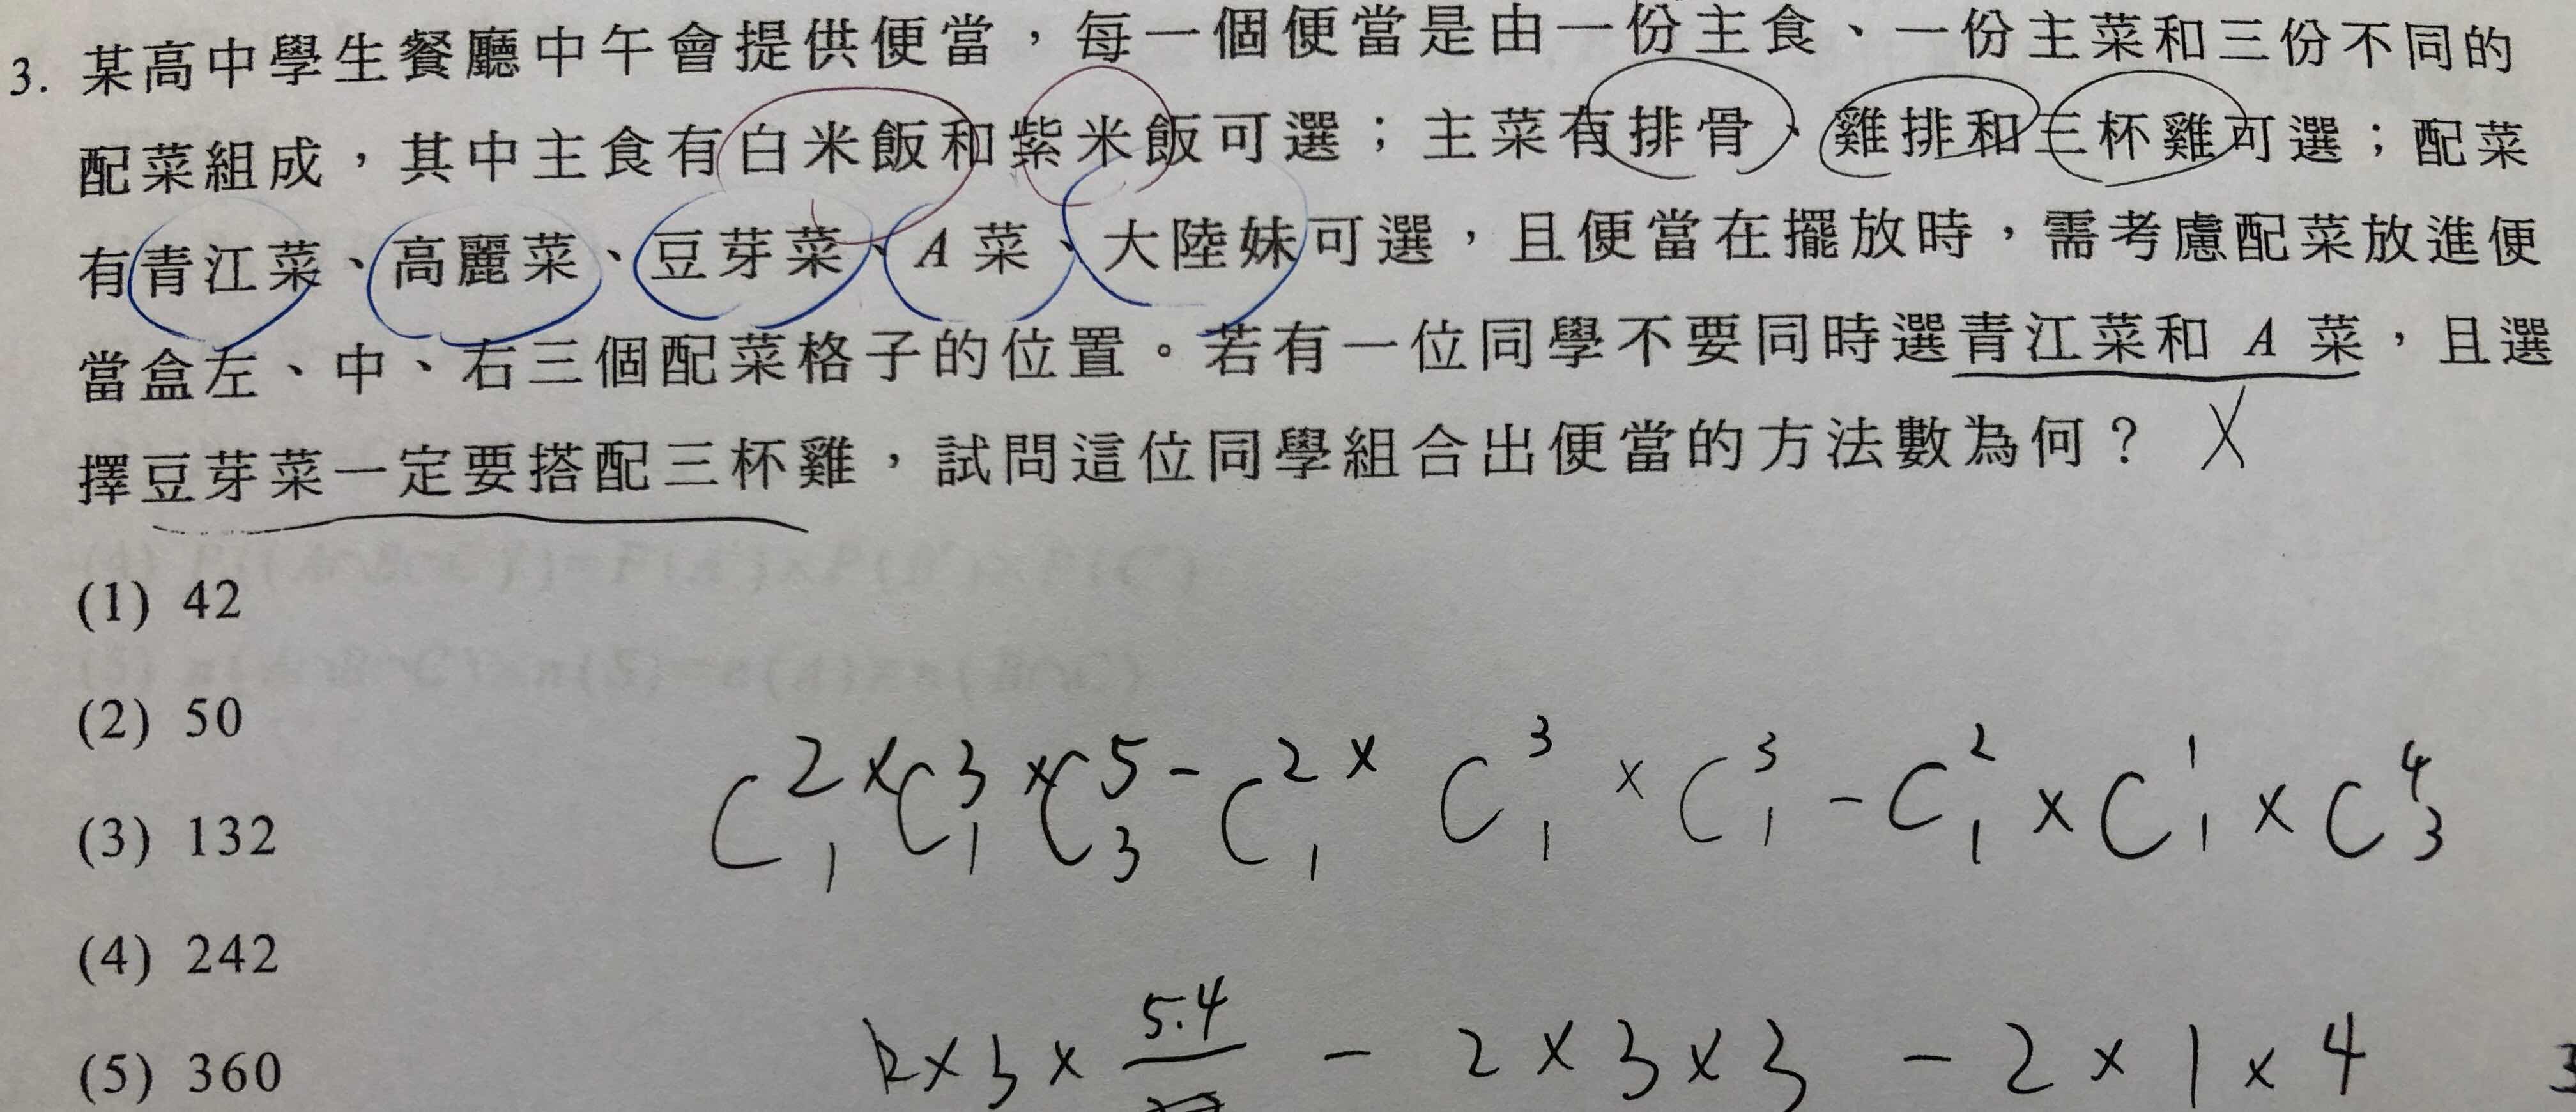 3. 某高中學生餐廳中午會提供便當，每一個便當是由一份主食、一份主菜和三份不同的
配菜組成，其中主食有白米飯和紫米飯可選；主菜有排骨、雞排和三杯雞可選；配菜
有青江菜、高麗菜、豆芽菜、A 菜、大陸妹可選，且便當在擺放時，需考慮配菜放進便
當盒左、中、右三個配菜格子的位置。若有一位同學不要同時選青江菜和 A 菜，且選
擇豆芽菜一定要搭配三杯雞，試問這位同學組合出便當的方法數為何？ X
(1) 42
(2) 50
(3) 132
(4) 242
(5) 360
C²₁ × C³₁ × C⁵₃ − C²₁ × C³₁ × C³₁ − C²₁ × C¹₁ × C⁴₃
2 × 3 × 5.4 − 2 × 3 × 3 − 2 × 1 × 4